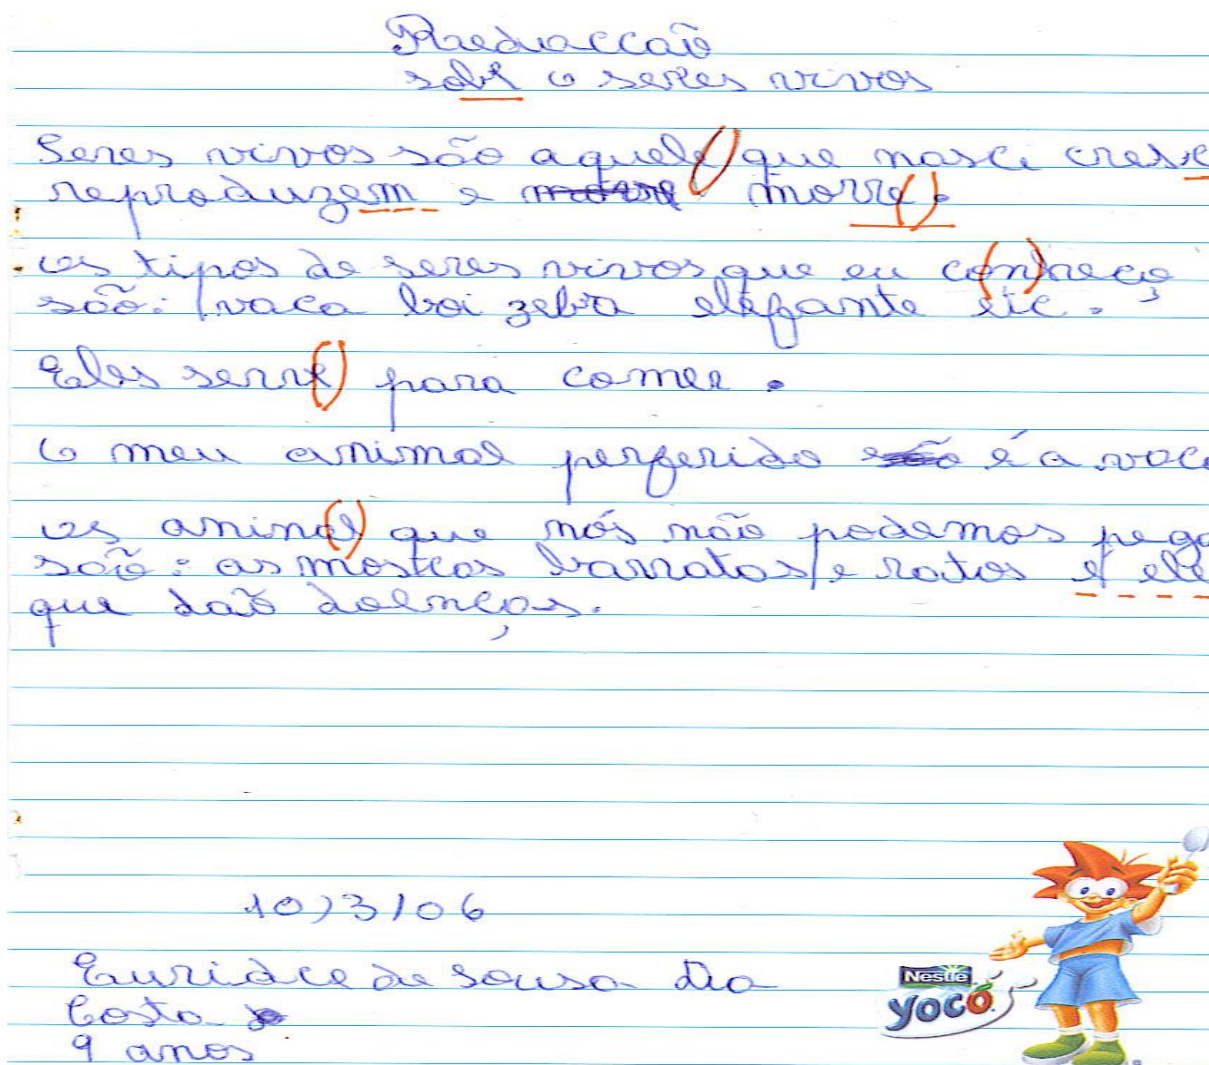 Redacção
sobre o seres vivos
Seres vivos são aquele que nasci cresce
reproduzem e morre.
os tipos de seres vivos que eu conheço
são: vaca boi zebra elefante etc.
Eles serve para comer.
O meu animal perferido é a vaca
os animal que nós não podemos pega
são: as moscas barratas e ratos e ele
que daõ doenças.
10/3/06
Euridce de Sousa da
Costa
9 anos
Nestlé
YOCO